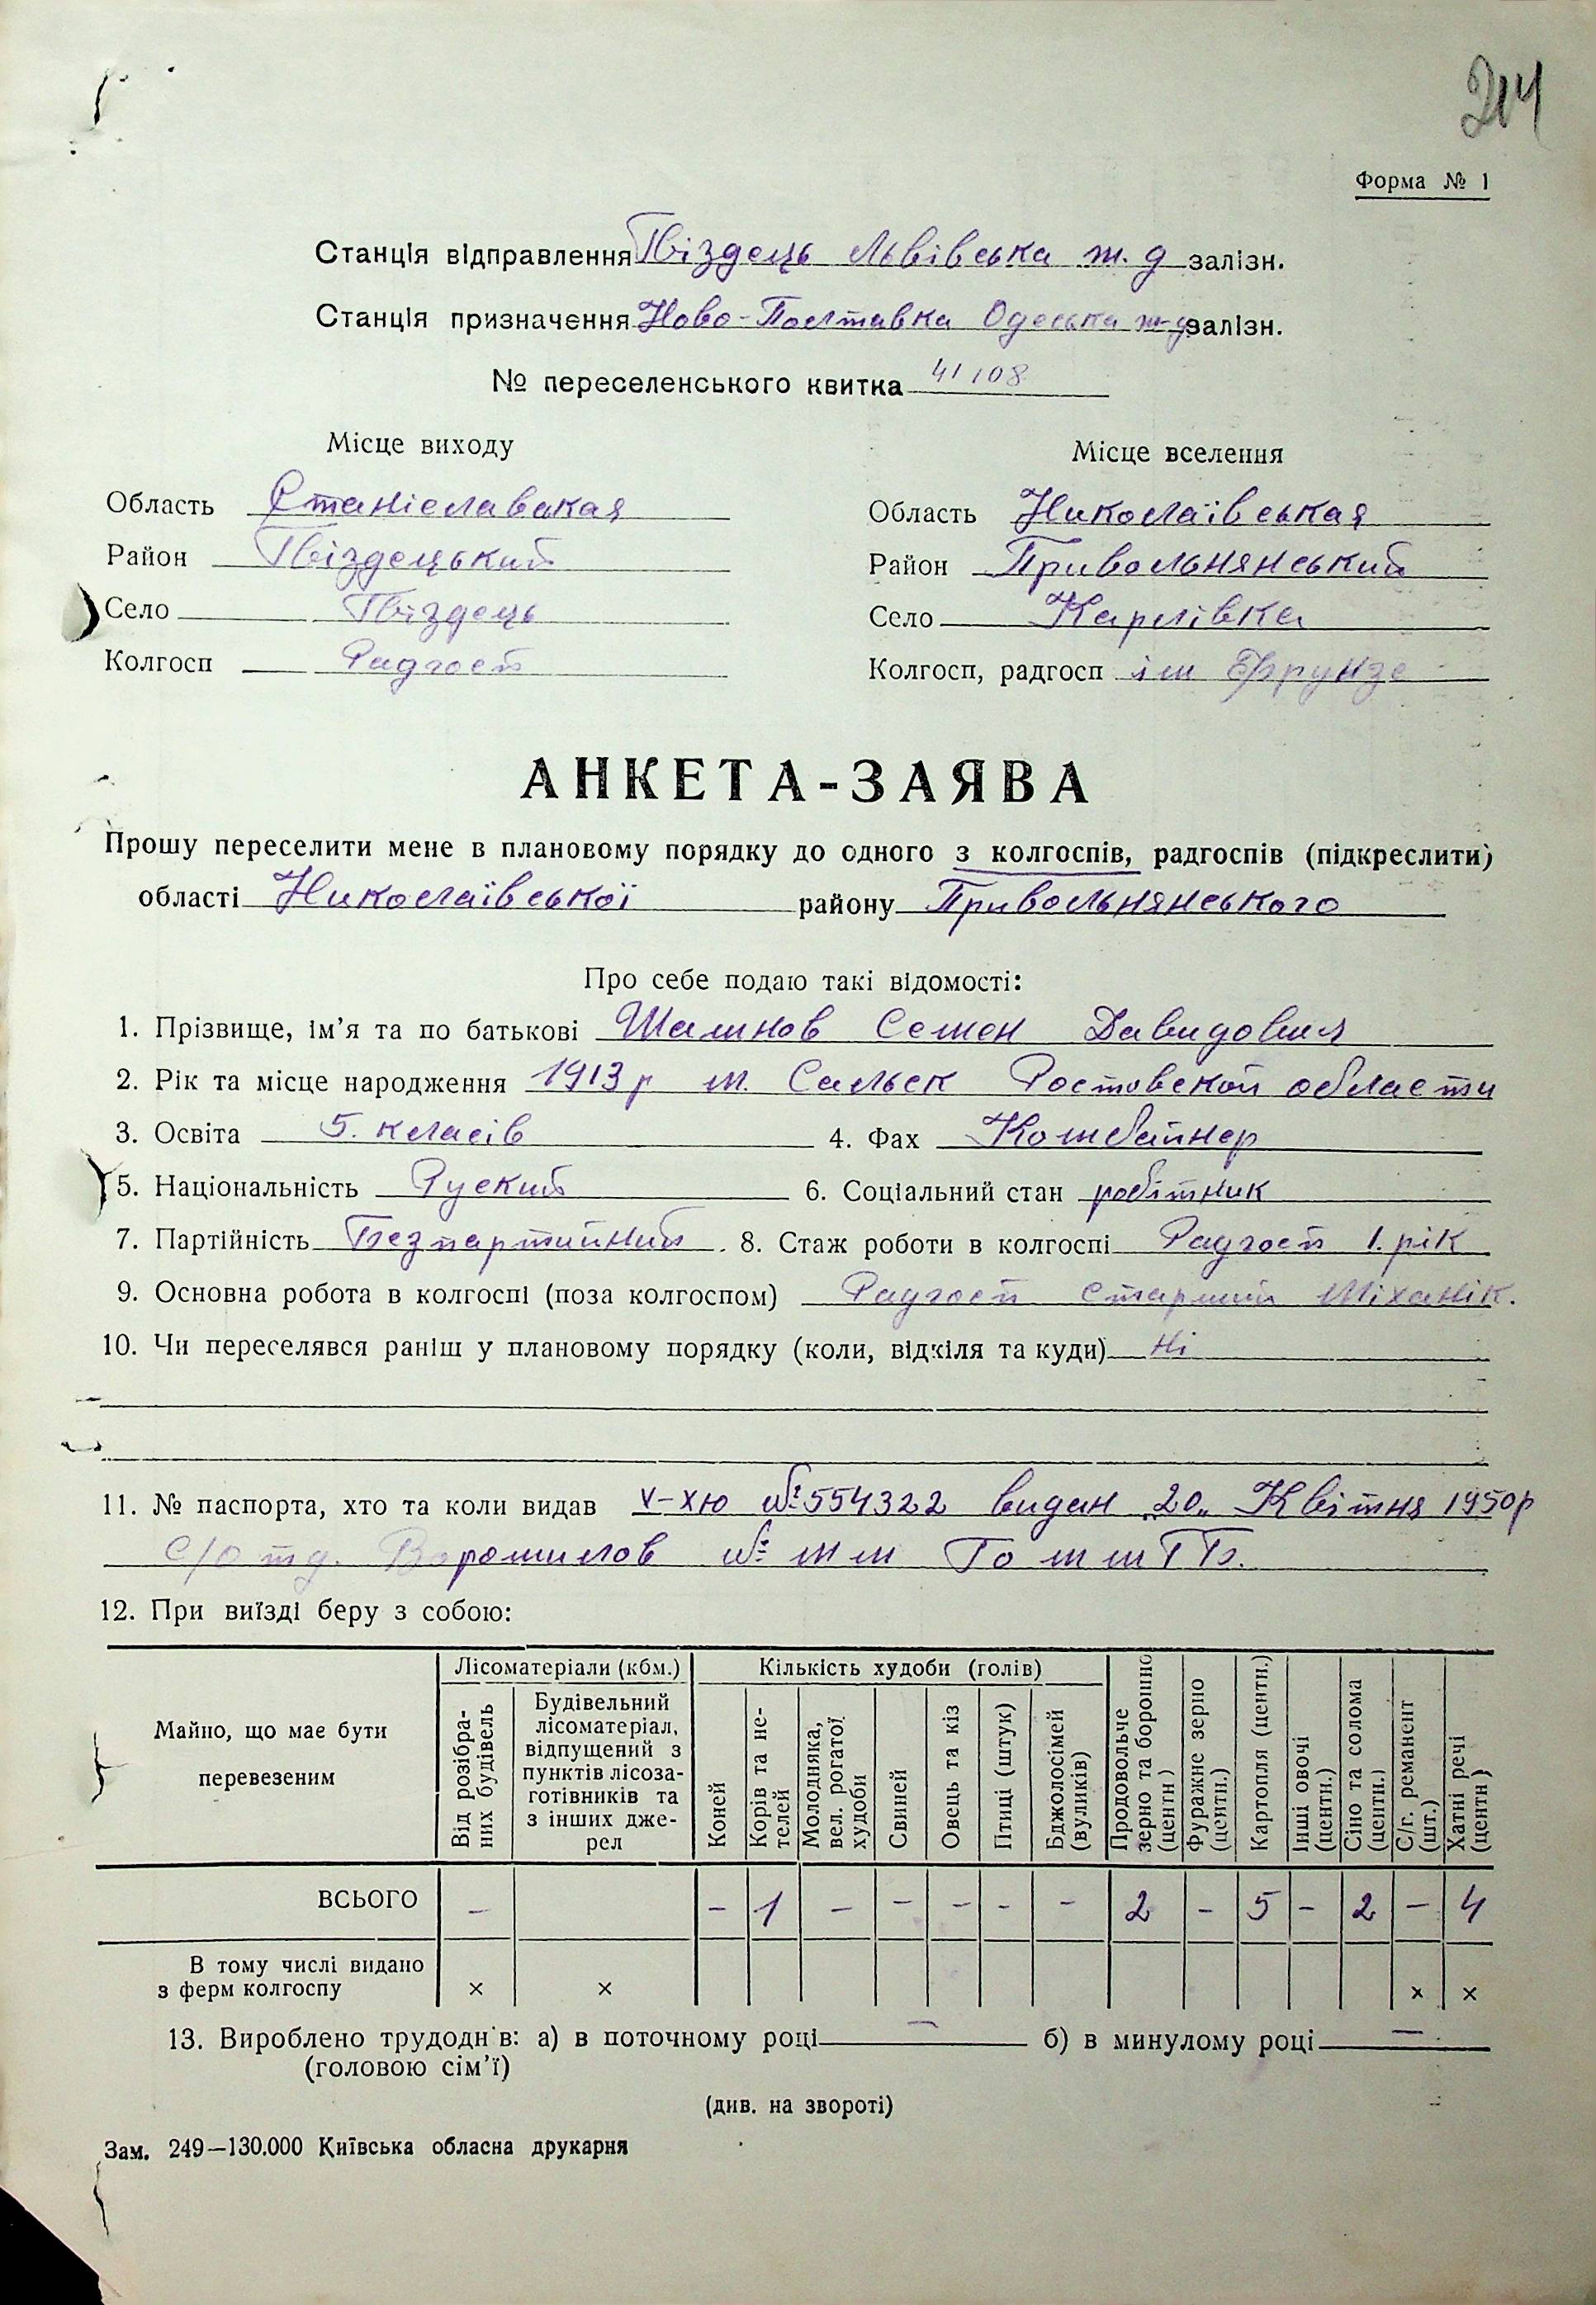 214
Форма № 1
Станція відправлення Гвіздець Львівська ж.д залізн.
Станція призначення Ново-Полтавка Одеська ж-д залізн.
№ переселенського квитка 41108
Місце виходу
Область Станіславская
Район Гвіздецький
Село Гвіздець
Колгосп Радгосп
Місце вселення
Область Николаївськая
Район Привольнянський
Село Карлівка
Колгосп, радгосп ім Фрунзе
АНКЕТА-ЗАЯВА
Прошу переселити мене в плановому порядку до одного з колгоспів, радгоспів (підкреслити)
області Николаївської району Привольнянського
Про себе подаю такі відомості:
1. Прізвище, ім'я та по батькові Шамнов Семен Давидович
2. Рік та місце народження 1913 р м. Сальск Ростовской области
3. Освіта 5. класів 4. Фах Комбайнер
5. Національність Руский 6. Соціальний стан робітник
7. Партійність Безпартийний 8. Стаж роботи в колгоспі Радгосп 1. рік
9. Основна робота в колгоспі (поза колгоспом) Радгосп старший міханік.
10. Чи переселявся раніш у плановому порядку (коли, відкіля та куди) Ні
11. № паспорта, хто та коли видав V-ХЮ № 554322 видан „20„ Квітня 1950р
С/О тд. Ворошилов №
12. При виїзді беру з собою:
Майно, що має бути перевезеним
Лісоматеріали (кбм.)
Від розібраних будівель
Будівельний лісоматеріал, відпущений з пунктів лісозаготівників та з інших джерел
Кількість худоби (голів)
Коней
Корів та нетелей
Молодняка, вел. рогатої худоби
Свиней
Овець та кіз
Птиці (штук)
Бджолосімей (вуликів)
Продовольче зерно та борошно (центн)
Фуражне зерно (центн.)
Картопля (центн.)
Інші овочі (центн.)
Сіно та солома (центн.)
С/г. реманент (шт.)
Хатні речі (центн)
ВСЬОГО - - 1 - - - - - 2 - 5 - 2 - 4
В тому числі видано з ферм колгоспу × × × ×
13. Вироблено трудодн в: а) в поточному році — б) в минулому році —
(головою сім'ї)
(див. на звороті)
Зам. 249—130.000 Київська обласна друкарня